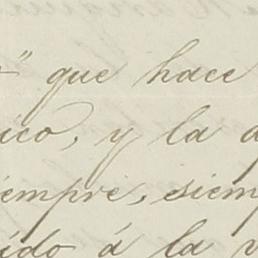 " que hace
ico, y la
iempre, siem
ido á la v